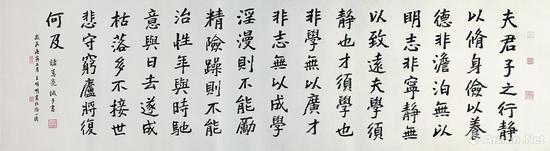 夫君子之行静
以脩身儉以養
德非澹泊無以
明志非寧静無
以致遠夫學須
静也才須學也
非學無以廣才
非志無以成學
淫漫則不能勵
精險躁則不能
治性年與時馳
意與日去遂成
枯落多不接世
悲守窮廬將復
何及
諸葛亮誡子書